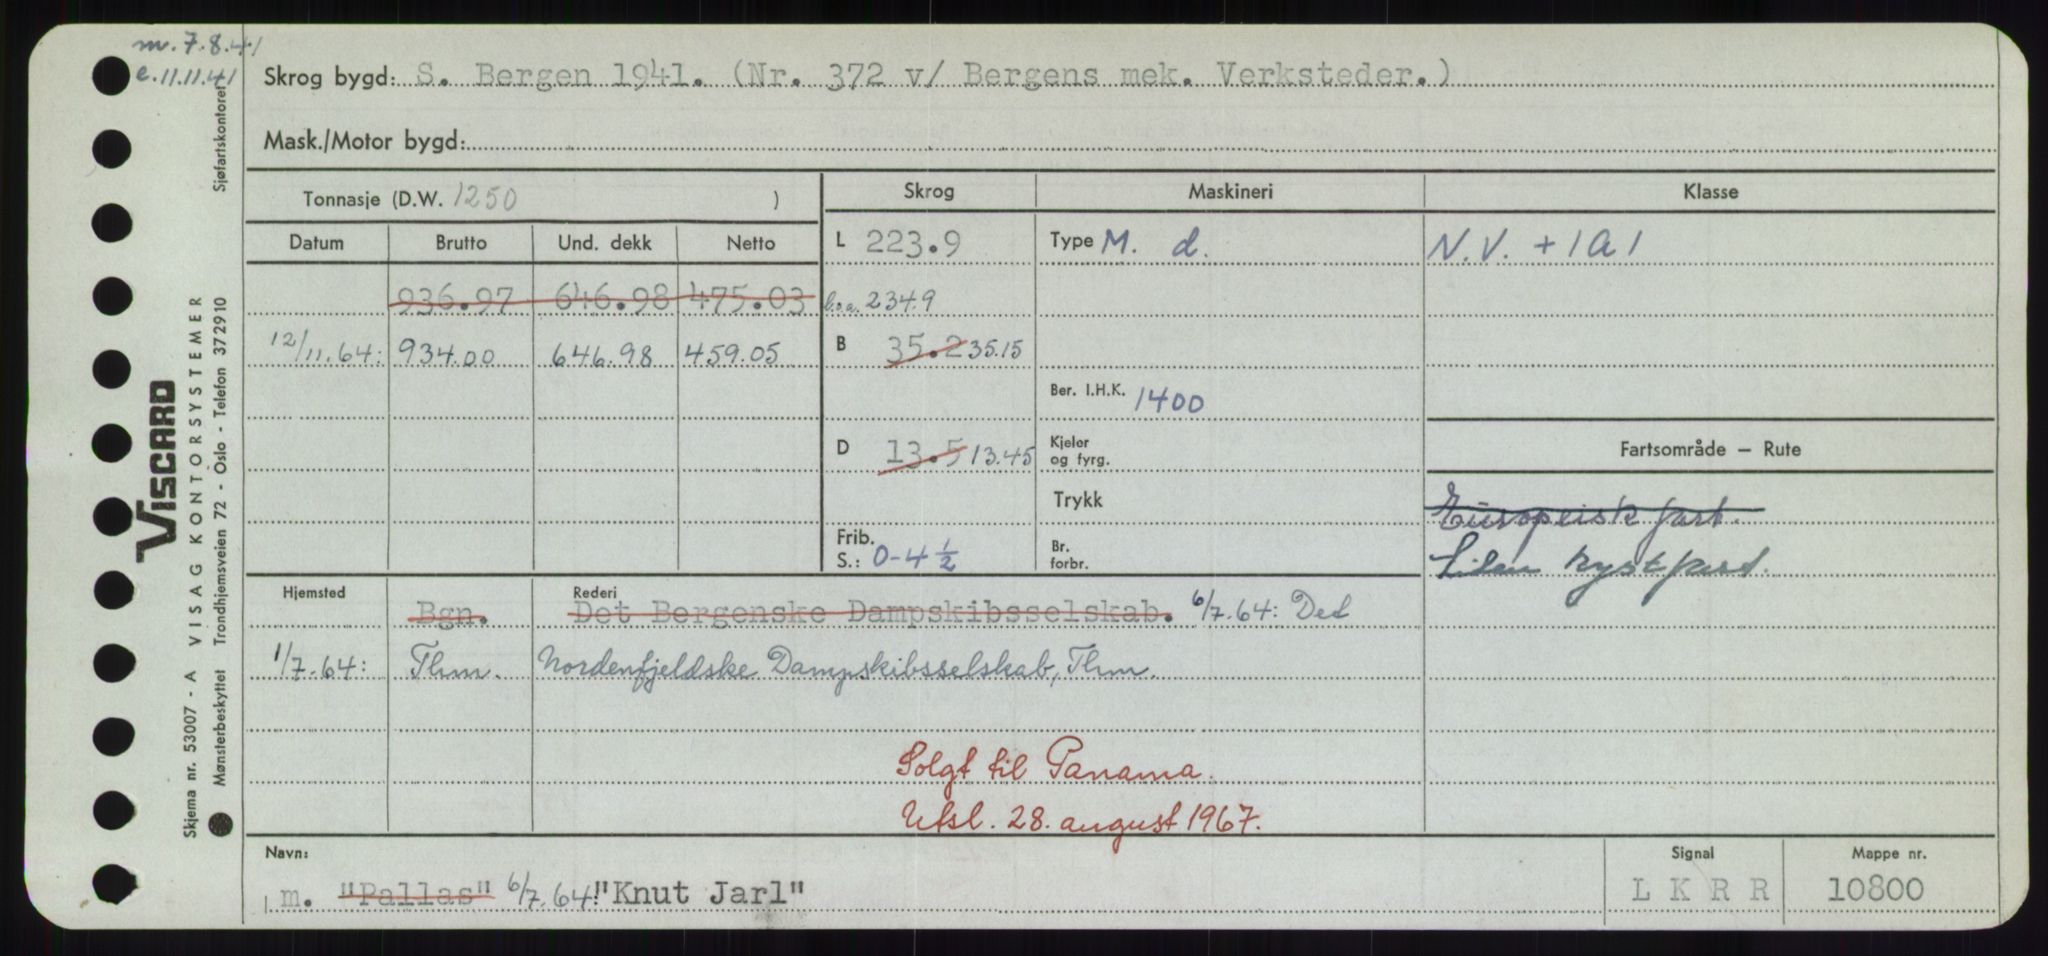 m. 7.8.41
e. 11.11.41
Skrog bygd: S. Bergen 1941. (Nr. 372 v/ Bergens mek. Verksteder.)
Mask./Motor bygd:
Tonnasje (D.W. 1250 )
Skrog Maskineri Klasse
Datum Brutto Und. dekk Netto
L 223.9 Type M. d. N.V. + 1A1
936.97 646.98 475.03 l.o.a. 234.9
12/11.64: 934.00 646.98 459.05 B 35.2 35.15
Ber. I.H.K. 1400
D 13.5 13.45 Kjeler og fyrg.
Fartsområde — Rute
Trykk
Europeisk fart.
Frib. S.: 0-4 1/2 Br. forbr.
Liten kystfart.
Hjemsted Rederi
Bgn. Det Bergenske Dampskibsselskab. 6/7.64: Det
1/7.64: Thm. Nordenfjeldske Dampskibsselskab, Thm.
Solgt til Panama.
Utsl. 28. august 1967.
Navn: Signal Mappe nr.
m. "Pallas" 6/7.64: "Knut Jarl" LKRR 10800
VISCARD
Skjema nr. 53007 - A VISAG KONTORSYSTEMER
Mønsterbeskyttet Trondhjemsveien 72 - Oslo - Telefon 372910 Sjøfartskontoret